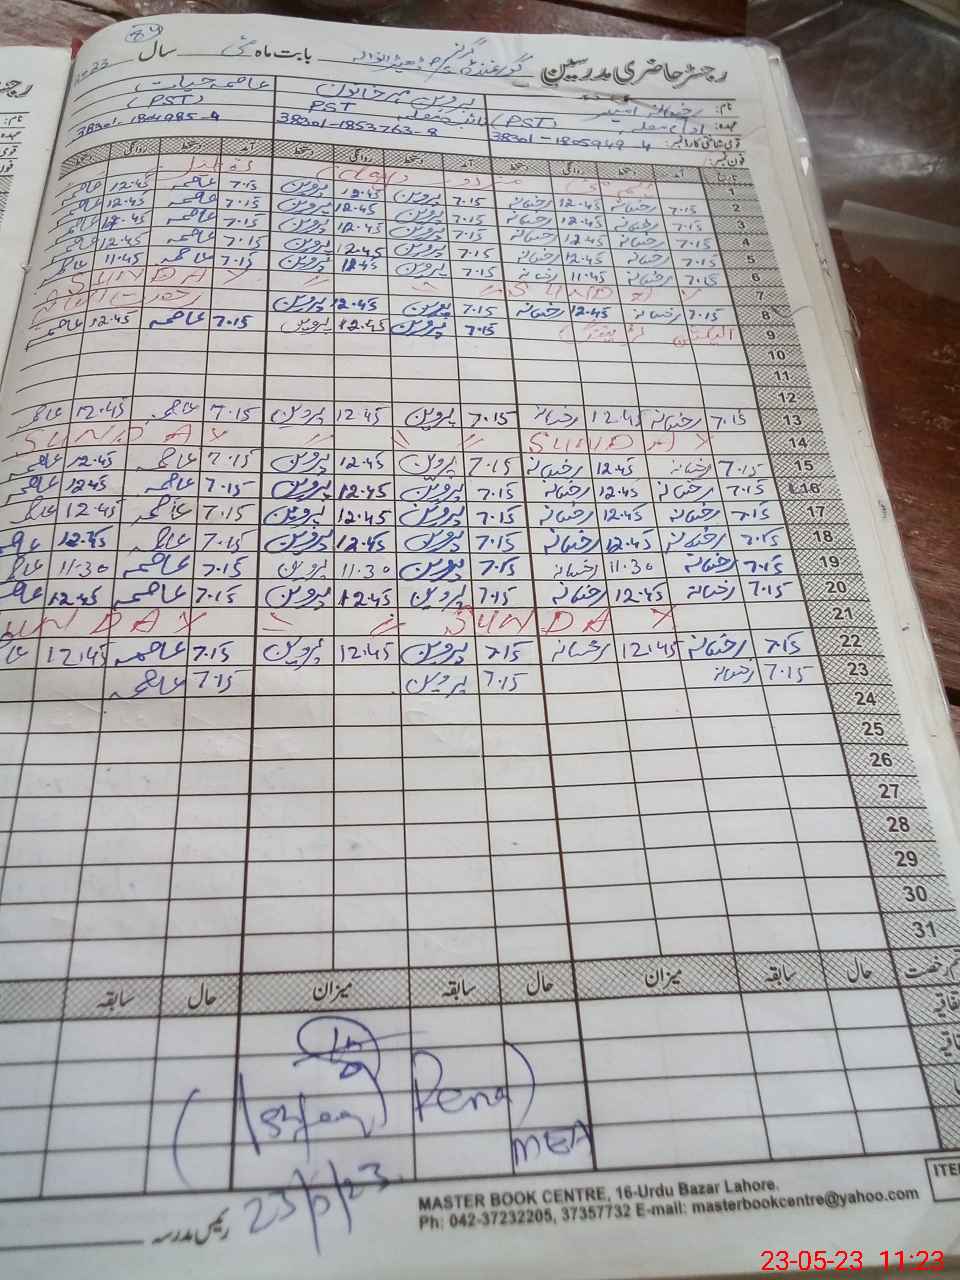 84
رجسٹر حاضری مدرسین گورنمنٹ گرلز بابت ماہ مئی سال
نام: رخسانہ پروین عاصمہ حیات
عہدہ: (PST) PST (PST)
قومی شناختی کارڈ نمبر: 38301-1805949-4 38301-1853763-8 38301-1804985-4
فون نمبر:
تاریخ آمد دستخط روانگی دستخط آمد دستخط روانگی دستخط آمد دستخط روانگی دستخط
1
2 7.15 رخسانہ 12.45 رخسانہ 7.15 پروین 12.45 پروین 7.15 عاصمہ 12.45 عاصمہ
3 7.15 رخسانہ 12.45 رخسانہ 7.15 پروین 12.45 پروین 7.15 عاصمہ 12.45 عاصمہ
4 7.15 رخسانہ 12.45 رخسانہ 7.15 پروین 12.45 پروین 7.15 عاصمہ 12.45 عاصمہ
5 7.15 رخسانہ 12.45 رخسانہ 7.15 پروین 12.45 پروین 7.15 عاصمہ 12.45 عاصمہ
6 7.15 رخسانہ 11.45 رخسانہ 7.15 پروین پروین 7.15 عاصمہ 11.45 عاصمہ
7 SUNDAY SUNDAY
8 7.15 رخسانہ 12.45 رخسانہ 7.15 پروین 12.45 پروین
9 7.15 پروین 12.45 پروین 7.15 عاصمہ 12.45 عاصمہ
10
11
12
13 7.15 رخسانہ 12.45 رخسانہ 7.15 پروین 12.45 پروین 7.15 عاصمہ 12.45 عاصمہ
14 SUNDAY SUNDAY
15 7.15 رخسانہ 12.45 رخسانہ 7.15 پروین 12.45 پروین 7.15 عاصمہ 12.45 عاصمہ
16 7.15 رخسانہ 12.45 رخسانہ 7.15 پروین 12.45 پروین 7.15 عاصمہ 12.45 عاصمہ
17 7.15 رخسانہ 12.45 رخسانہ 7.15 پروین 12.45 پروین 7.15 عاصمہ 12.45 عاصمہ
18 7.15 رخسانہ 12.45 رخسانہ 7.15 پروین 12.45 پروین 7.15 عاصمہ 12.45 عاصمہ
19 7.15 رخسانہ 11.30 رخسانہ 7.15 پروین 11.30 پروین 7.15 عاصمہ 11.30 عاصمہ
20 7.15 رخسانہ 12.45 رخسانہ 7.15 پروین 12.45 پروین 7.15 عاصمہ 12.45 عاصمہ
21 SUNDAY SUNDAY
22 7.15 رخسانہ 12.45 رخسانہ 7.15 پروین 12.45 پروین 7.15 عاصمہ 12.45
23 7.15 رخسانہ 7.15 پروین 7.15 عاصمہ
24
25
26
27
28
29
30
31
رخصت حال سابقہ میزان حال سابقہ میزان حال سابقہ
MEA
رئیس مدرسہ
MASTER BOOK CENTRE, 16-Urdu Bazar Lahore.
Ph: 042-37232205, 37357732 E-mail: masterbookcentre@yahoo.com
ITE
23-05-23 11:23